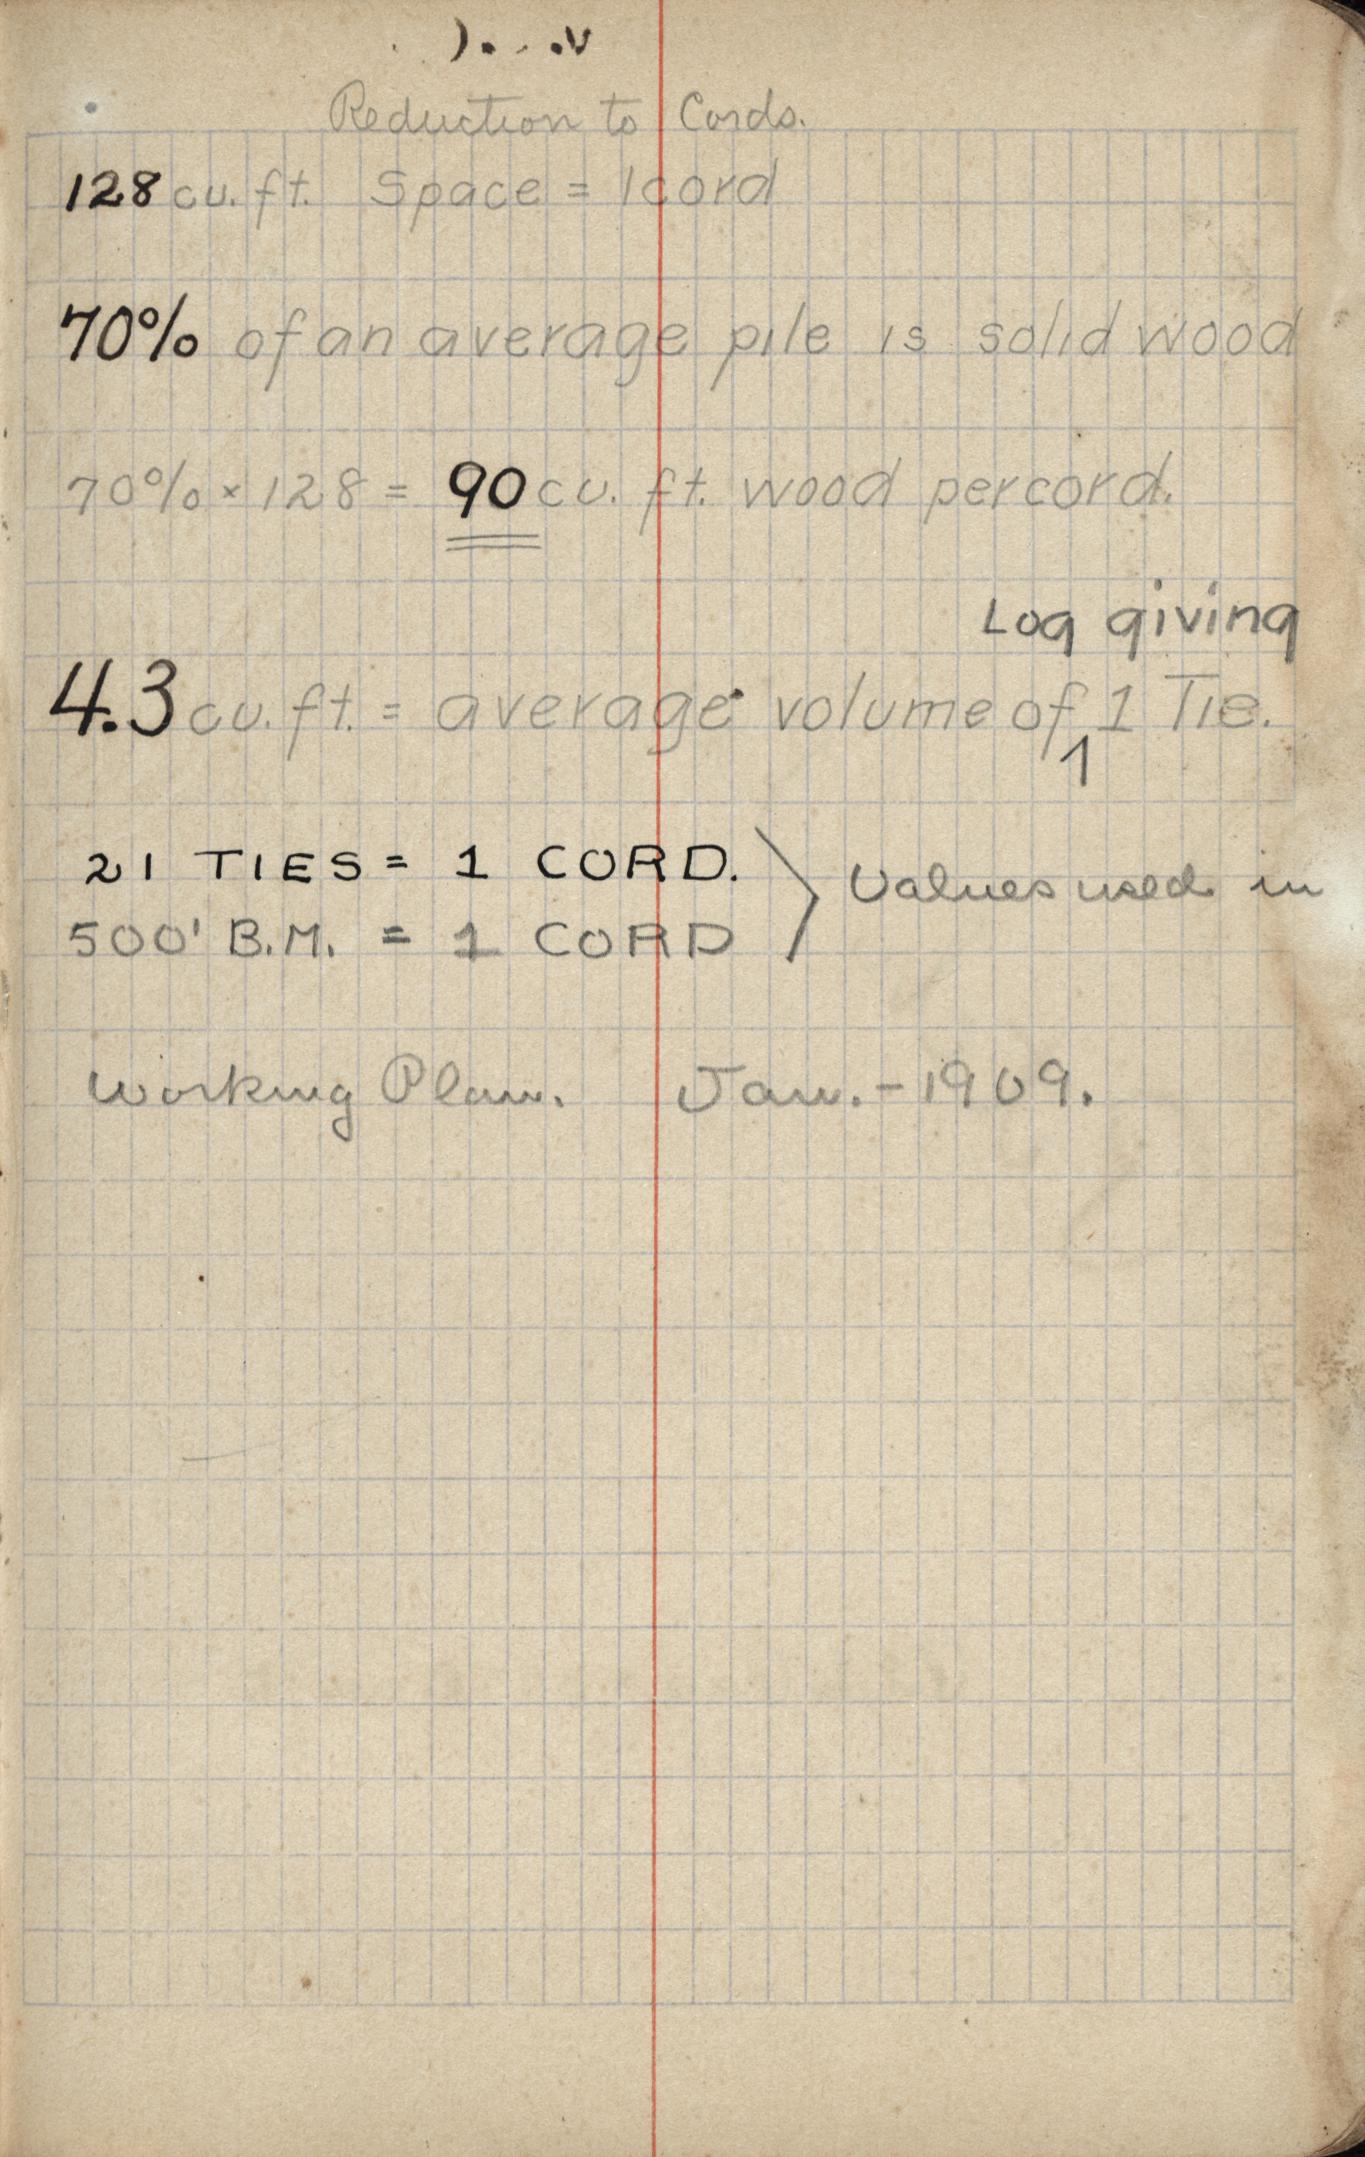 Reduction to Cords.
128 cu. ft. Space = 1 cord
70% of an average pile is solid wood
70% × 128 = 90 cu. ft. wood per cord.
Log giving
4.3 cu. ft. = average volume of 1 Tie.
21 TIES = 1 CORD.
500' B.M. = 1 CORD
Values used in
Working Plan. Jan. - 1909.